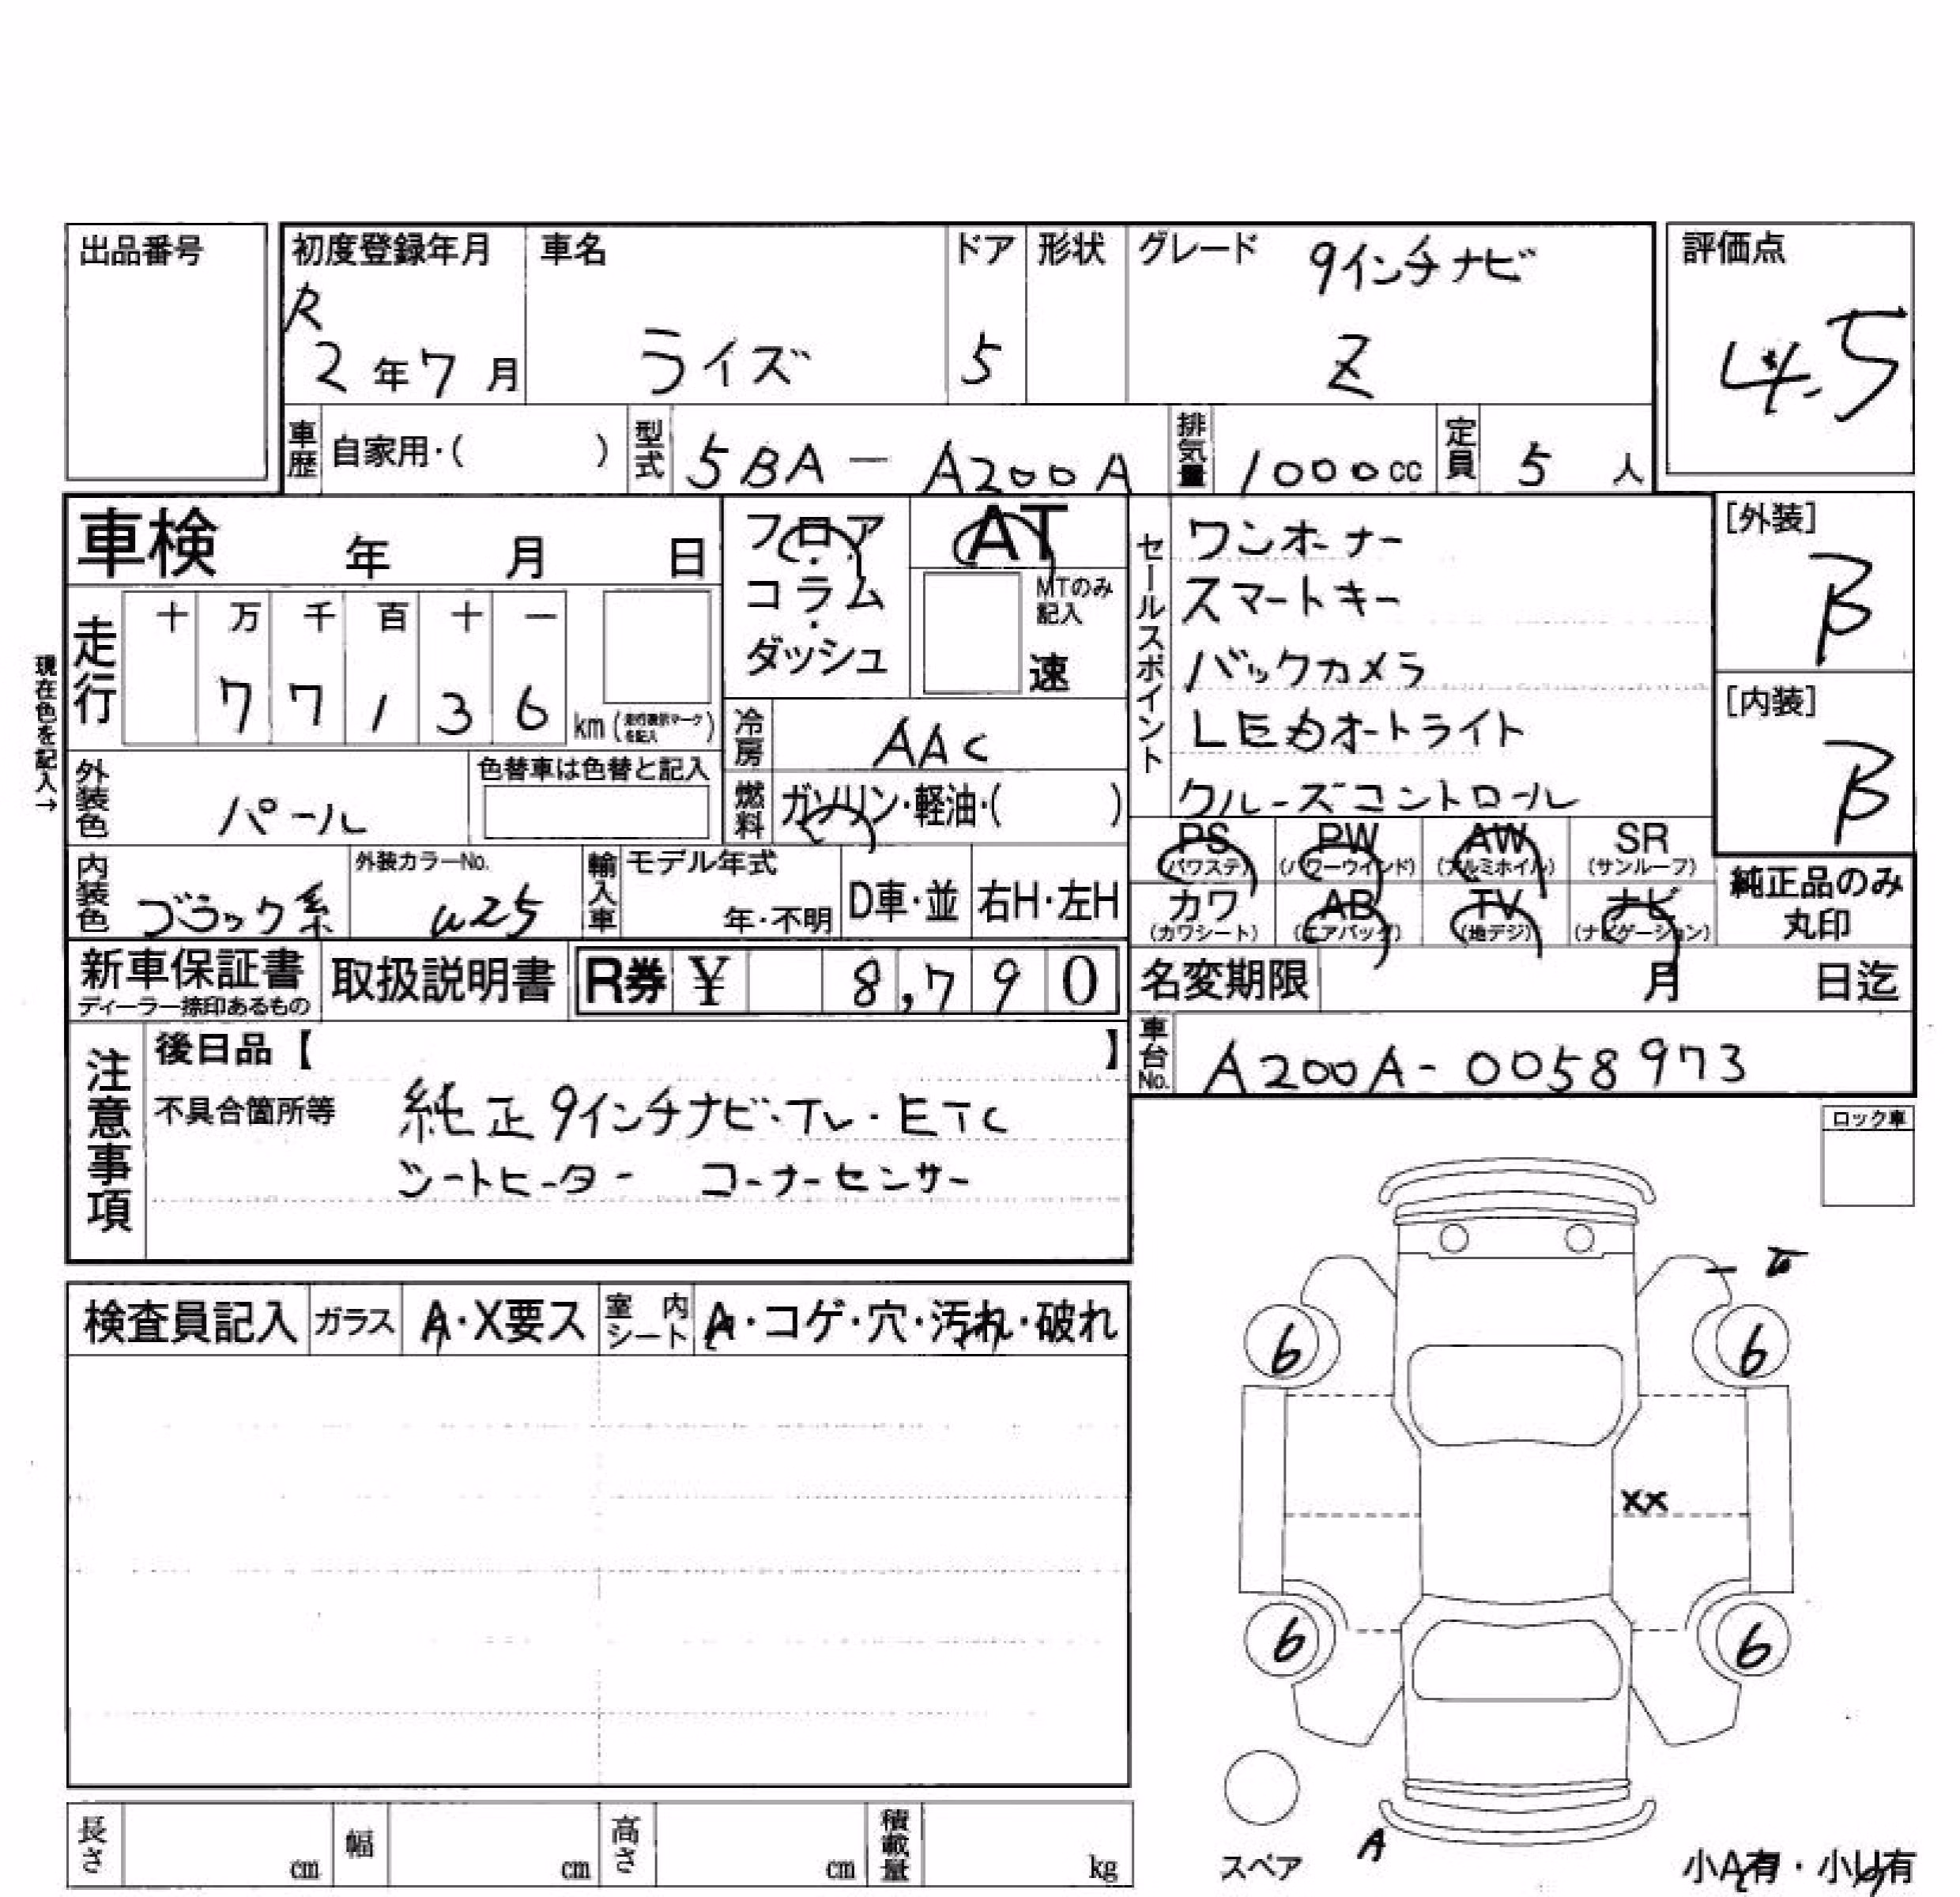 出品番号
初度登録年月 車名 ドア 形状 グレード 9インチナビ 評価点
R
2年7月 ライズ 5 Z 4.5
車歴 自家用・( ) 型式 5BA-A200A 排気量 1000cc 定員 5人
車検 年 月 日
フロア・コラム・ダッシュ
AT
MTのみ記入
速
セールスポイント
ワンオーナー
スマートキー
バックカメラ
LEDオートライト
クルーズコントロール
[外装]
B
[内装]
B
現在色を記入→
走行 十 万 千 百 十 一
77136 km (走行表示マークを記入)
冷房 AAC
外装色 パール 色替車は色替と記入
燃料 ガソリン・軽油・( )
PS (パワステ) PW (パワーウインド) AW (アルミホイル) SR (サンルーフ)
カワ (カワシート) AB (エアバッグ) TV (地デジ) ナビ (ナビゲーション)
純正品のみ丸印
内装色 ブラック系 外装カラーNo. W25 輸入車 モデル年式 年・不明 D車・並 右H・左H
新車保証書 ディーラー捺印あるもの 取扱説明書 R券 ¥ 8,790 名変期限 月 日迄
車台No. A200A-0058973
注意事項
後日品【 】
不具合箇所等 純正9インチナビ・TV・ETC
シートヒーター コーナーセンサー
ロック車
検査員記入 ガラス A・X要ス 室内シート A・コゲ・穴・汚れ・破れ
6 6
XX
6 6
スペア
A
小A有・小U有
長さ cm 幅 cm 高さ cm 積載量 kg